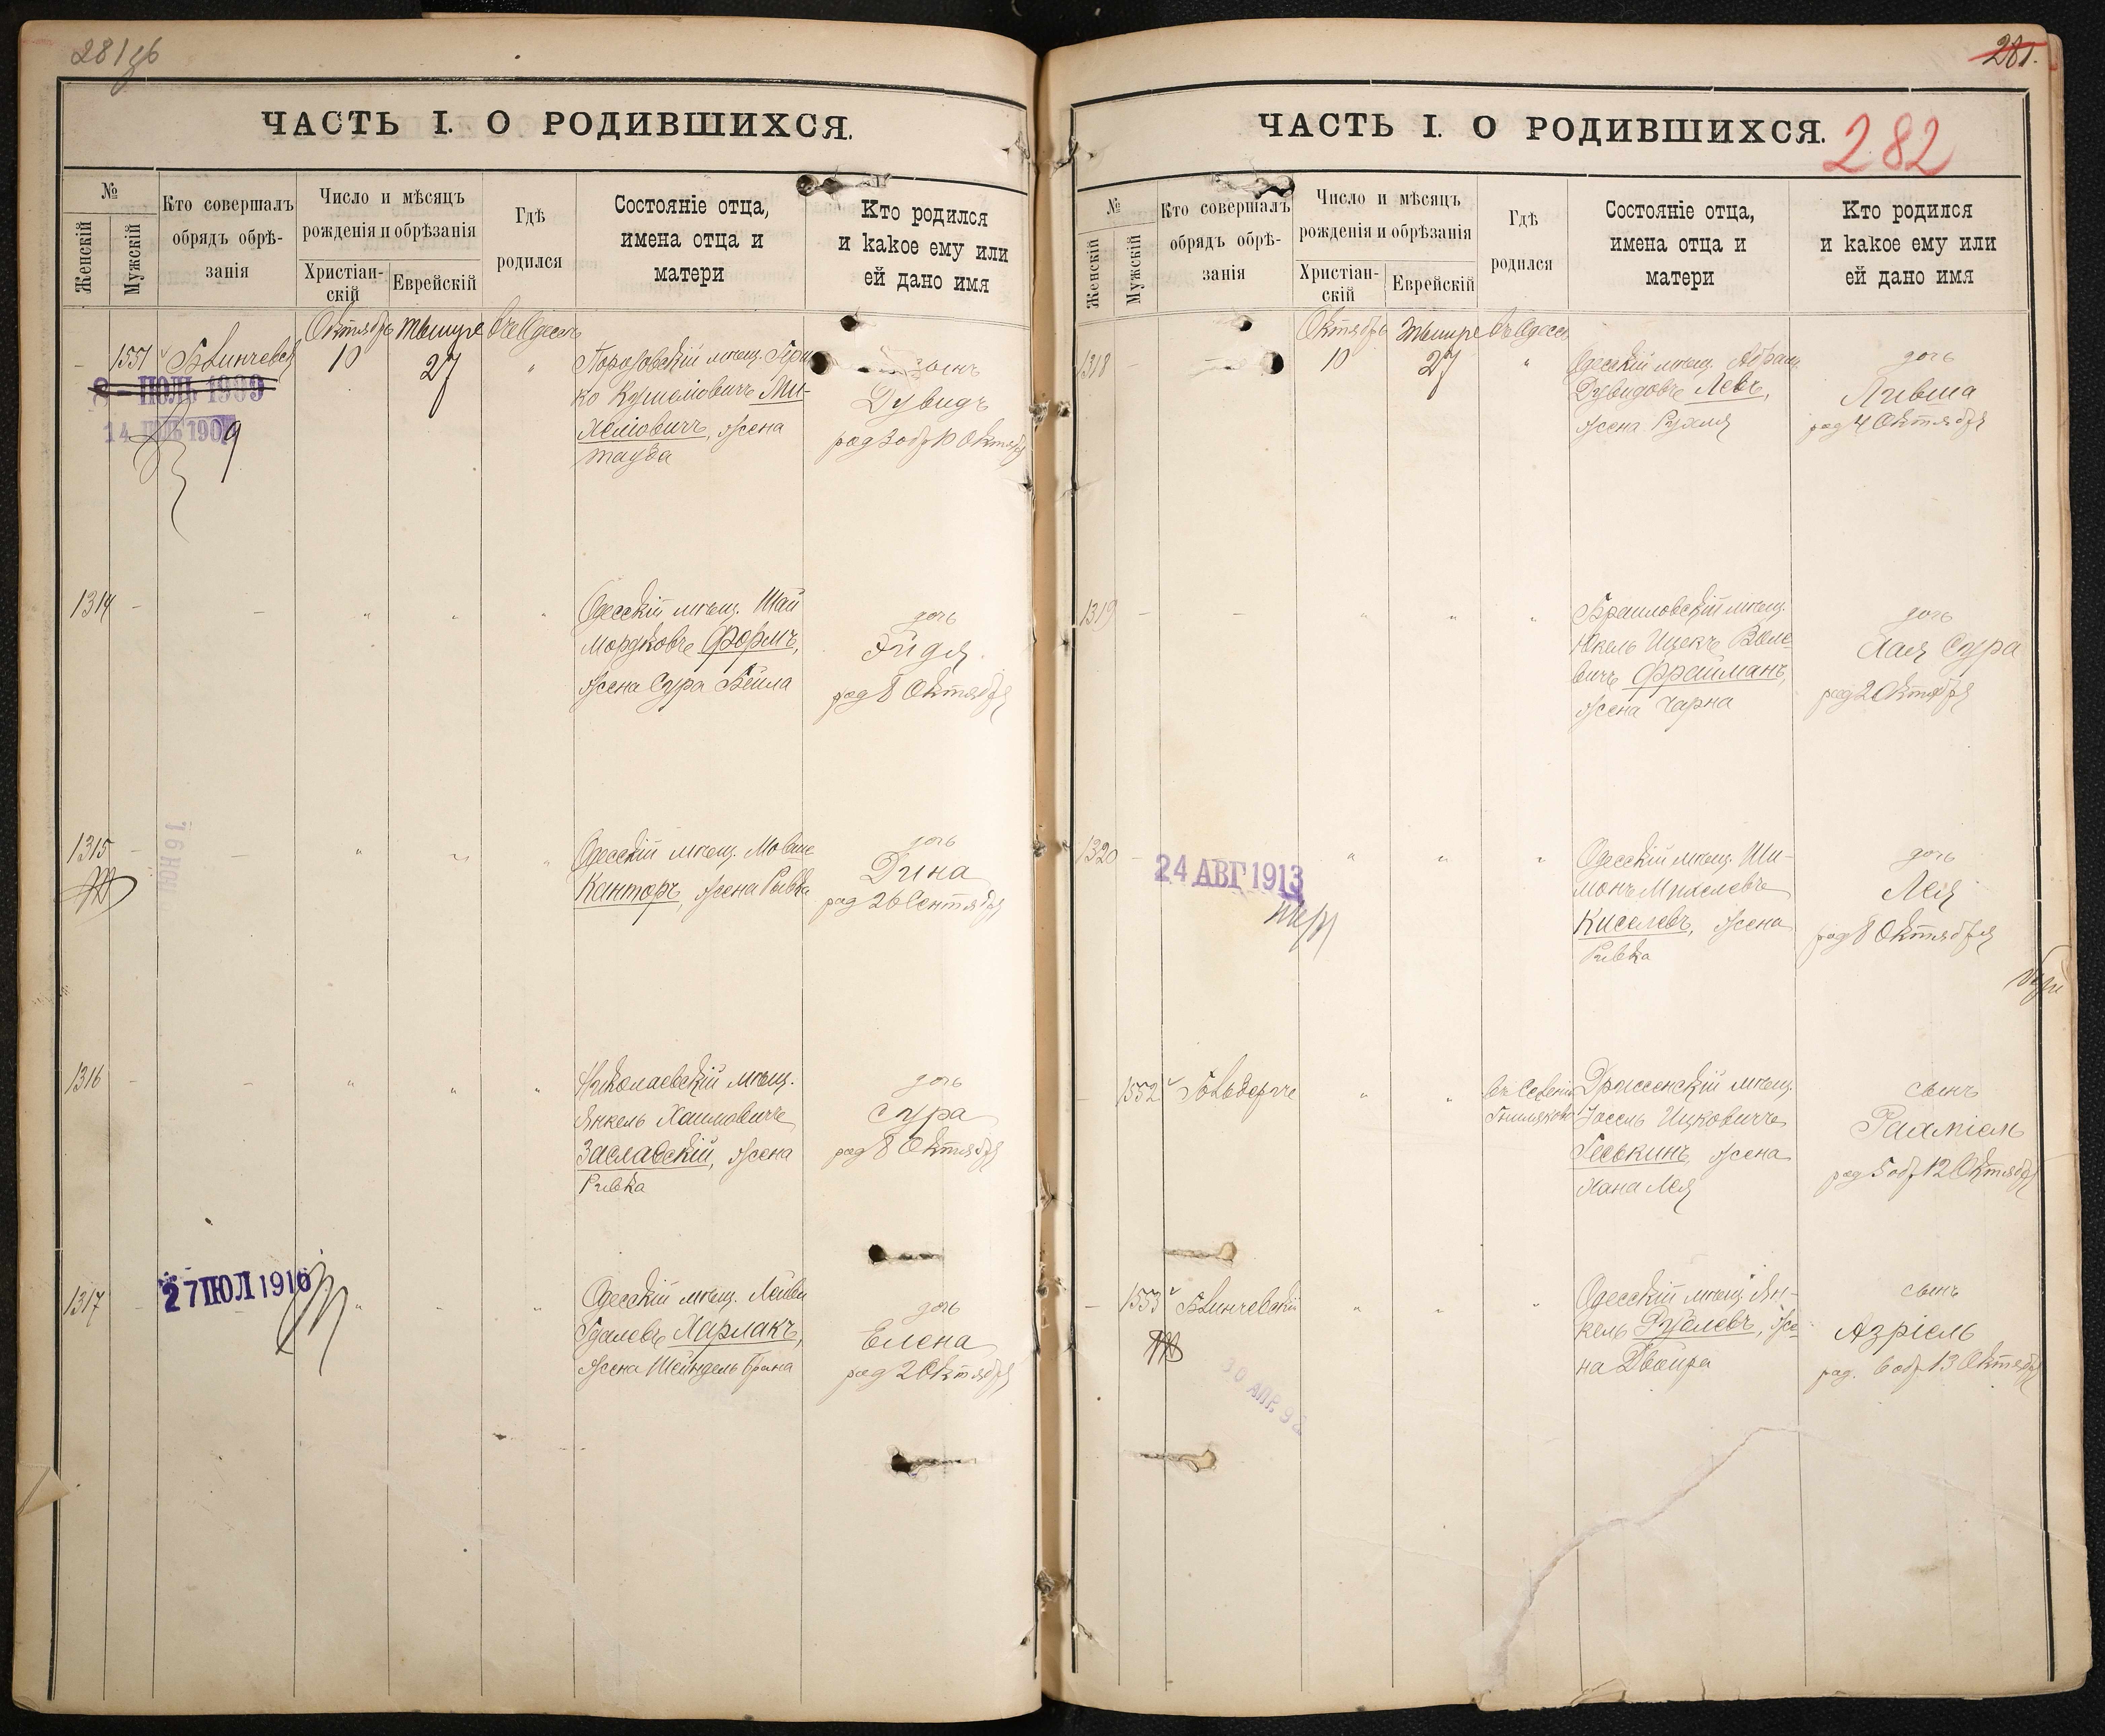 281об
ЧАСТЬ I. О РОДИВШИХСЯ.
№
Женскій
Мужскій
Кто совершалъ
обрядъ обрѣ-
занія
Число и мѣсяцъ
рожденія и обрѣзанія
Христіан-
скій
Еврейскій
Гдѣ
родился
Состояніе отца,
имена отца и
матери
Кто родился
и какое ему или
ей дано имя
Октябрь Тышре въ Одессѣ
1551 Блинчевск
10 27 "
мѣщ.
Ми-
хелювичъ, жена
Тауба
сынъ
Дувидъ
род 3 обр 10 Октября
8 - ІЮЛЬ 1909
14 1909
1314 - - " " "
Одесскій мѣщ. Шая
Мордковъ Формъ,
жена Сура Бейла
дочь
Гидя
род 8 Октября
1315 - - " " "
Одесскій мѣщ. Мовше
Канторъ, жена Рывка
дочь
Дина
род 26 Сентября
16 ІЮН
1316 - - " " "
Николаевскій мѣщ.
Янкель Хаимовичъ
Заславскій, жена
Ривка
дочь
Сура
род 8 Октября
1317 - " " "
27 ІЮЛ 1916
Одесскій мѣщ. Лейви
Гдалевъ Харлакъ,
жена Шейндель Брана
дочь
Елена
род 2 Октября
281.
ЧАСТЬ I. О РОДИВШИХСЯ.
282
№
Женскій
Мужскій
Кто совершалъ
обрядъ обрѣ-
занія
Число и мѣсяцъ
рожденія и обрѣзанія
Христіан-
скій
Еврейскій
Гдѣ
родился
Состояніе отца,
имена отца и
матери
Кто родился
и какое ему или
ей дано имя
Октябрь Тышре въ Одессѣ
1318 - - 10 27 "
Одесскій мѣщ. Абрамъ
Дувидовъ Левъ,
жена Рухля
дочь
Ливша
род 4 Октября
1319 - - " " "
Браиловскій мѣщ.
Юкель Ицекъ Волье-
вичъ Фрайманъ,
жена Чарна
дочь
Хая Сура
род 2 Октября
1320 - " " "
24 АВГ 1913
Одесскій мѣщ. Ши-
монъ Михелевъ
Киселевъ, жена
Ривка
дочь
Лея
род 8 Октября
- 1552 Гольдорче " "
Дриссенскій мѣщ.
Іосель Ицковичъ
Геськинъ, жена
Хана Лея
сынъ
Рахміель
род 5 обр 12 Октября
- 1553 Блинчевскій " " "
Одесскій мѣщ. Ян-
кель Рубалевъ, же-
на Двойра
сынъ
Азріель
род. 6 обр 13 Октября
30 АПР. 92